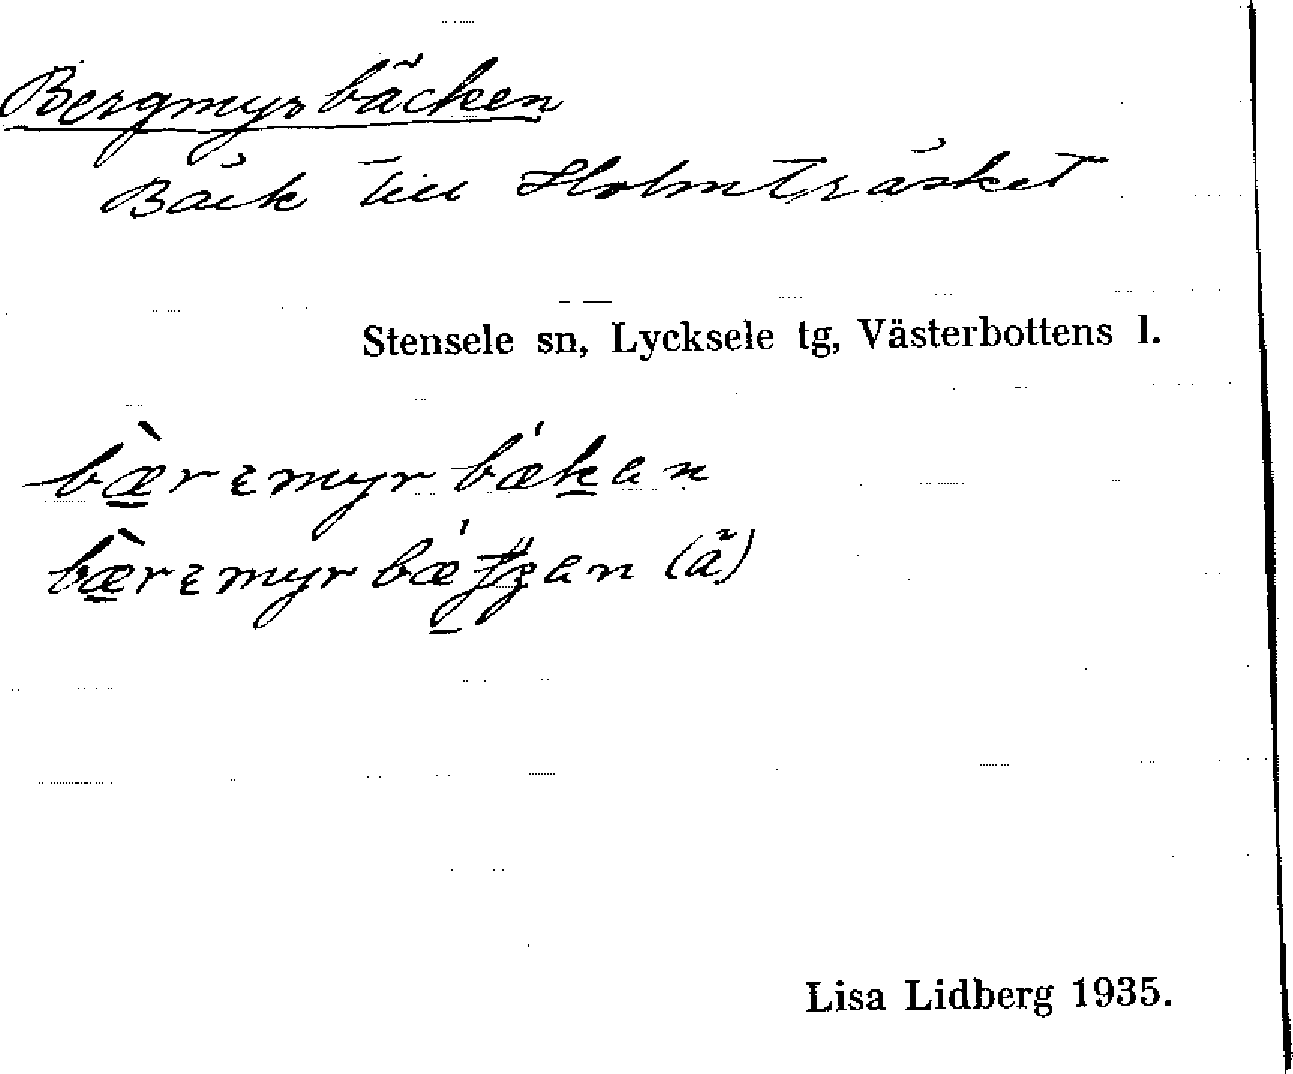 Bergmyrbäcken
Bäck till Holmträsket
Stensele sn, Lycksele tg, Västerbottens l.
bæ̀rɛmyrbækan
(ä)
Lisa Lidberg 1935.